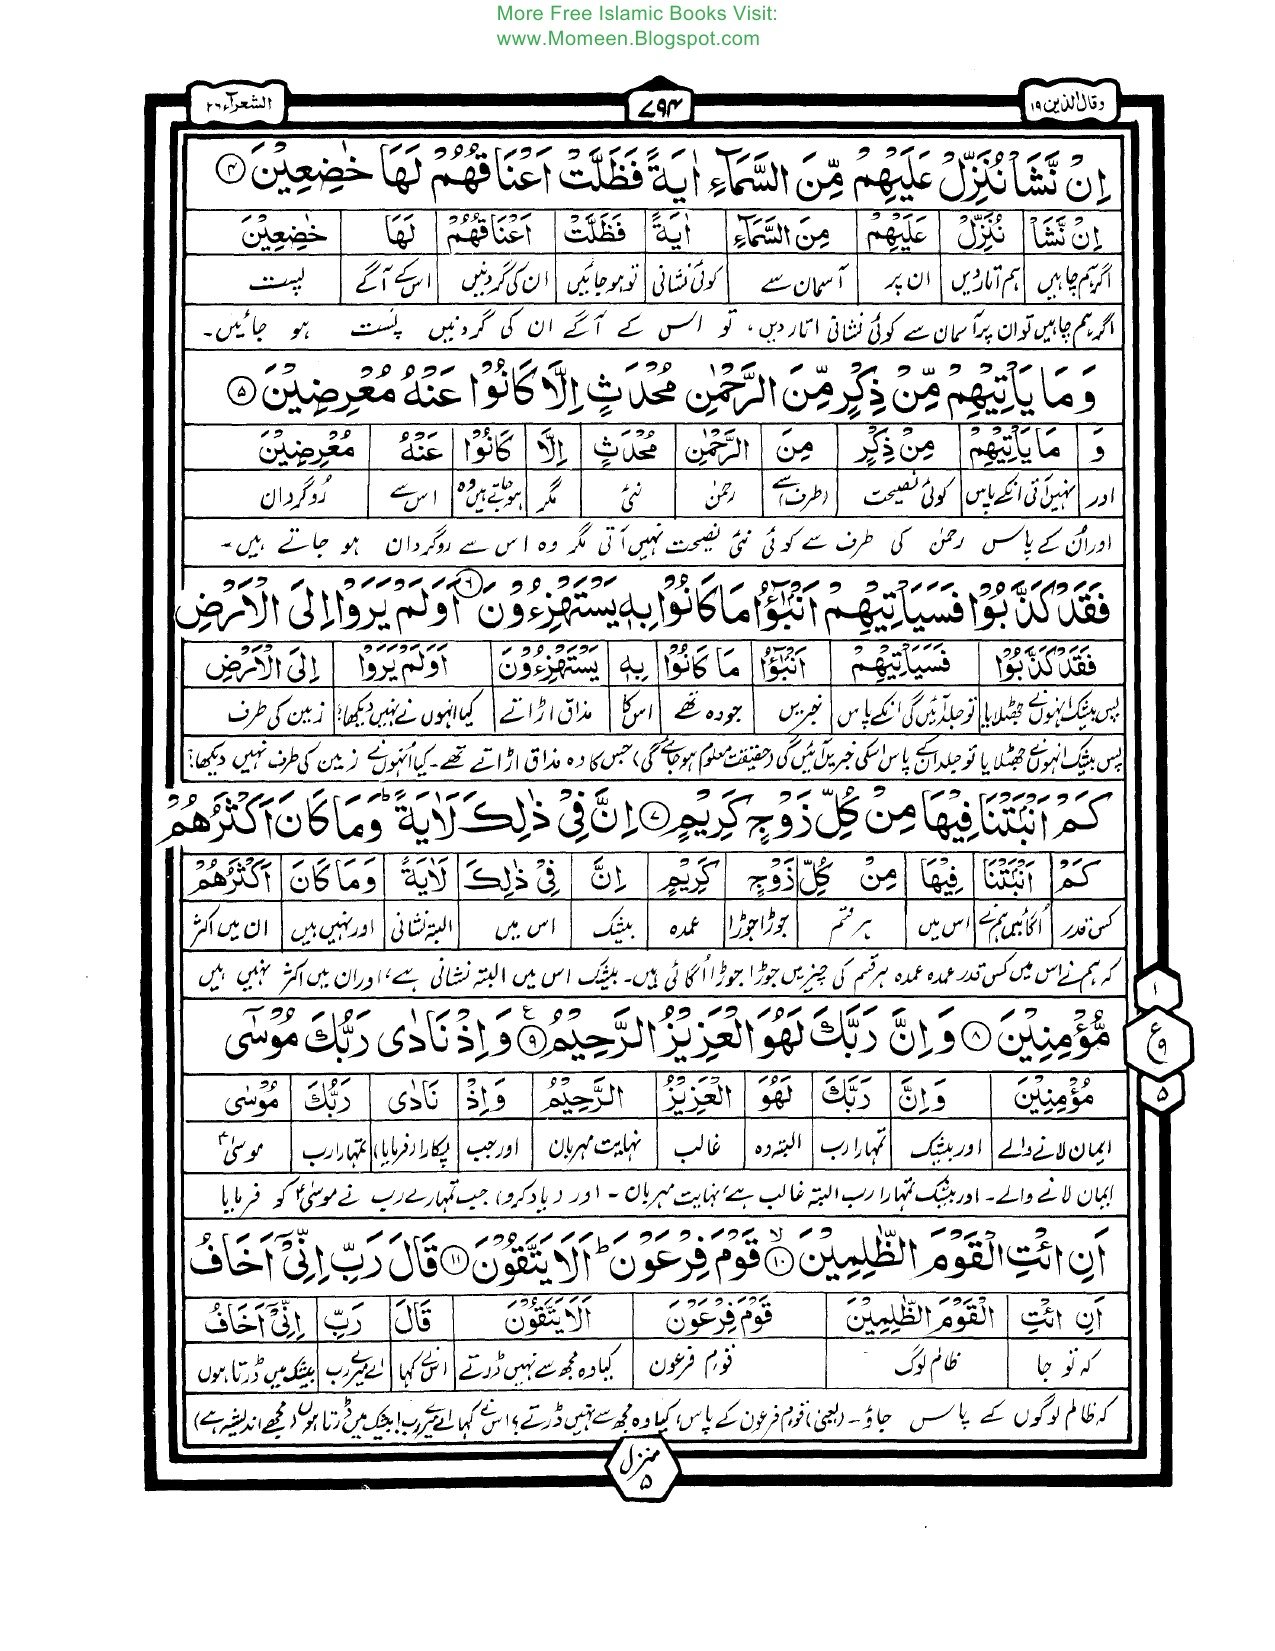 More Free Islamic Books Visit:
www.Momeen.Blogspot.com
وقال الذین ۱۹
۷۹۴
الشعرآء ۲۶
اِنْ نَّشَاْ نُنَزِّلْ عَلَیْهِمْ مِّنَ السَّمَآءِ اٰیَةً فَظَلَّتْ اَعْنَاقُهُمْ لَهَا خٰضِعِیْنَ ۴
اِنْ نَّشَاْ نُنَزِّلْ عَلَیْهِمْ مِنَ السَّمَآءِ اٰیَةً فَظَلَّتْ اَعْنَاقُهُمْ لَهَا خٰضِعِیْنَ
اگر ہم چاہیں ہم اتار دیں ان پر آسمان سے کوئی نشانی تو ہو جائیں ان کی گردنیں اس کے آگے پست
اگر ہم چاہیں تو ان پر آسمان سے کوئی نشانی اتار دیں، تو اس کے آگے ان کی گردنیں پست ہو جائیں۔
وَمَا یَاْتِیْهِمْ مِّنْ ذِكْرٍ مِّنَ الرَّحْمٰنِ مُحْدَثٍ اِلَّا كَانُوْا عَنْهُ مُعْرِضِیْنَ ۵
وَ مَا یَاْتِیْهِمْ مِنْ ذِكْرٍ مِنَ الرَّحْمٰنِ مُحْدَثٍ اِلَّا كَانُوْا عَنْهُ مُعْرِضِیْنَ
اور نہیں آتی انکے پاس کوئی نصیحت (طرف) سے رحمٰن نئی مگر ہو جاتے ہیں وہ اس سے رُوگردان
اور اُن کے پاس رحمٰن کی طرف سے کوئی نئی نصیحت نہیں آتی مگر وہ اس سے روگردان ہو جاتے ہیں۔
فَقَدْ كَذَّبُوْا فَسَیَاْتِیْهِمْ اَنْۢبٰٓؤُا مَا كَانُوْا بِهٖ یَسْتَهْزِءُوْنَ ۶ اَوَلَمْ یَرَوْا اِلَى الْاَرْضِ
فَقَدْ كَذَّبُوْا فَسَیَاْتِیْهِمْ اَنْۢبٰٓؤُا مَا كَانُوْا بِهٖ یَسْتَهْزِءُوْنَ اَوَلَمْ یَرَوْا اِلَى الْاَرْضِ
پس بیشک انہوں نے جھٹلایا تو جلد آئیں گی انکے پاس خبریں جو وہ تھے اس کا مذاق اڑاتے کیا انہوں نے نہیں دیکھا؟ زمین کی طرف
پس بیشک انہوں نے جھٹلایا تو جلد ان کے پاس اسکی خبریں آئیں گی (حقیقت معلوم ہو جائے گی) جس کا وہ مذاق اڑاتے تھے۔ کیا انہوں نے زمین کی طرف نہیں دیکھا؟
كَمْ اَنْۢبَتْنَا فِیْهَا مِنْ كُلِّ زَوْجٍ كَرِیْمٍ ۷ اِنَّ فِیْ ذٰلِكَ لَاٰیَةً ؕ وَمَا كَانَ اَكْثَرُهُمْ
كَمْ اَنْۢبَتْنَا فِیْهَا مِنْ كُلِّ زَوْجٍ كَرِیْمٍ اِنَّ فِیْ ذٰلِكَ لَاٰیَةً وَمَا كَانَ اَكْثَرُهُمْ
کس قدر اُگائیں ہم نے اس میں ہر قسم جوڑا جوڑا عمدہ بیشک اس میں البتہ نشانی اور نہیں ہیں ان میں اکثر
کہ ہم نے اس میں کس قدر عمدہ عمدہ ہر قسم کی چیزیں جوڑا جوڑا اُگائی ہیں۔ بیشک اس میں البتہ نشانی ہے، اور ان میں اکثر نہیں ہیں
مُّؤْمِنِیْنَ ۸ وَاِنَّ رَبَّكَ لَهُوَ الْعَزِیْزُ الرَّحِیْمُ ۹ ع وَاِذْ نَادٰى رَبُّكَ مُوْسٰۤى
۱
ع ۹
۵
مُؤْمِنِیْنَ وَاِنَّ رَبَّكَ لَهُوَ الْعَزِیْزُ الرَّحِیْمُ وَاِذْ نَادٰى رَبُّكَ مُوْسٰۤى
ایمان لانے والے اور بیشک تمہارا رب البتہ وہ غالب نہایت مہربان اور جب پکارا (فرمایا) تمہارا رب موسیٰؑ
ایمان لانے والے۔ اور بیشک تمہارا رب البتہ غالب ہے، نہایت مہربان۔ اور (یاد کرو) جب تمہارے رب نے موسیٰؑ کو فرمایا
اَنِ ائْتِ الْقَوْمَ الظّٰلِمِیْنَ ۱۰ لا قَوْمَ فِرْعَوْنَ ؕ اَلَا یَتَّقُوْنَ ۱۱ قَالَ رَبِّ اِنِّیْۤ اَخَافُ
اَنِ ائْتِ الْقَوْمَ الظّٰلِمِیْنَ قَوْمَ فِرْعَوْنَ اَلَا یَتَّقُوْنَ قَالَ رَبِّ اِنِّیْۤ اَخَافُ
کہ تو جا ظالم لوگ قومِ فرعون کیا وہ مجھ سے نہیں ڈرتے اس نے کہا اے میرے رب بیشک میں ڈرتا ہوں
کہ ظالم لوگوں کے پاس جاؤ۔ (یعنی) قوم فرعون کے پاس، کیا وہ مجھ سے نہیں ڈرتے؟ اس نے کہا اے میرے رب! بیشک میں ڈرتا ہوں (مجھے اندیشہ ہے)
منزل ۵